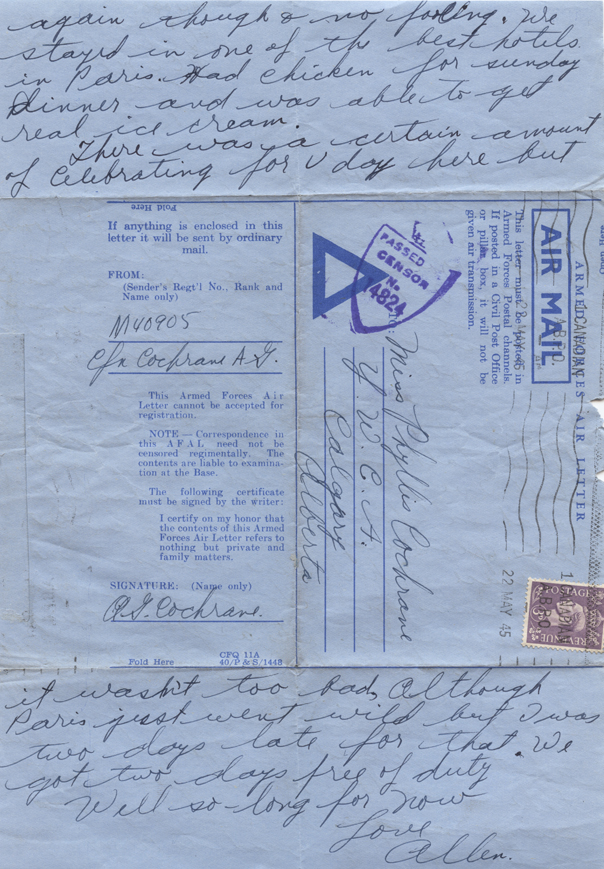 again though & no fooling. We
stayed in one of the best hotels
in Paris. Had chicken for sunday
dinner and was able to get
real ice cream.
There was a certain amount
of celebrating for V day here but
Fold Here
If anything is enclosed in this
letter it will be sent by ordinary
mail.
FROM:
(Sender's Regt'l No., Rank and
Name only)
M40905
Cfn Cochrane A.G.
This Armed Forces Air
Letter cannot be accepted for
registration.
NOTE — Correspondence in
this AFAL need not be
censored regimentally. The
contents are liable to examina-
tion at the Base.
The following certificate
must be signed by the writer:
I certify on my honor that
the contents of this Armed
Forces Air Letter refers to
nothing but private and
family matters.
SIGNATURE: (Name only)
A.G. Cochrane.
Fold Here
CFQ 11A
40/P & S/1448
ARMED FORCES AIR LETTER
AIR MAIL
This letter must be posted in
Armed Forces Postal channels.
If posted in a Civil Post Office
or pillar box, it will not be
given air transmission.
PASSED
CENSOR
No.
14824
TO:
Miss Phyllis Cochrane
Y.W.C.A.
Calgary
Alberta
22 MAY 45
POSTAGE
REVENUE
it wasn't too bad, although
Paris just went wild but I was
two days late for that. We
got two days free of duty
Well so-long for now
Love
Allen.